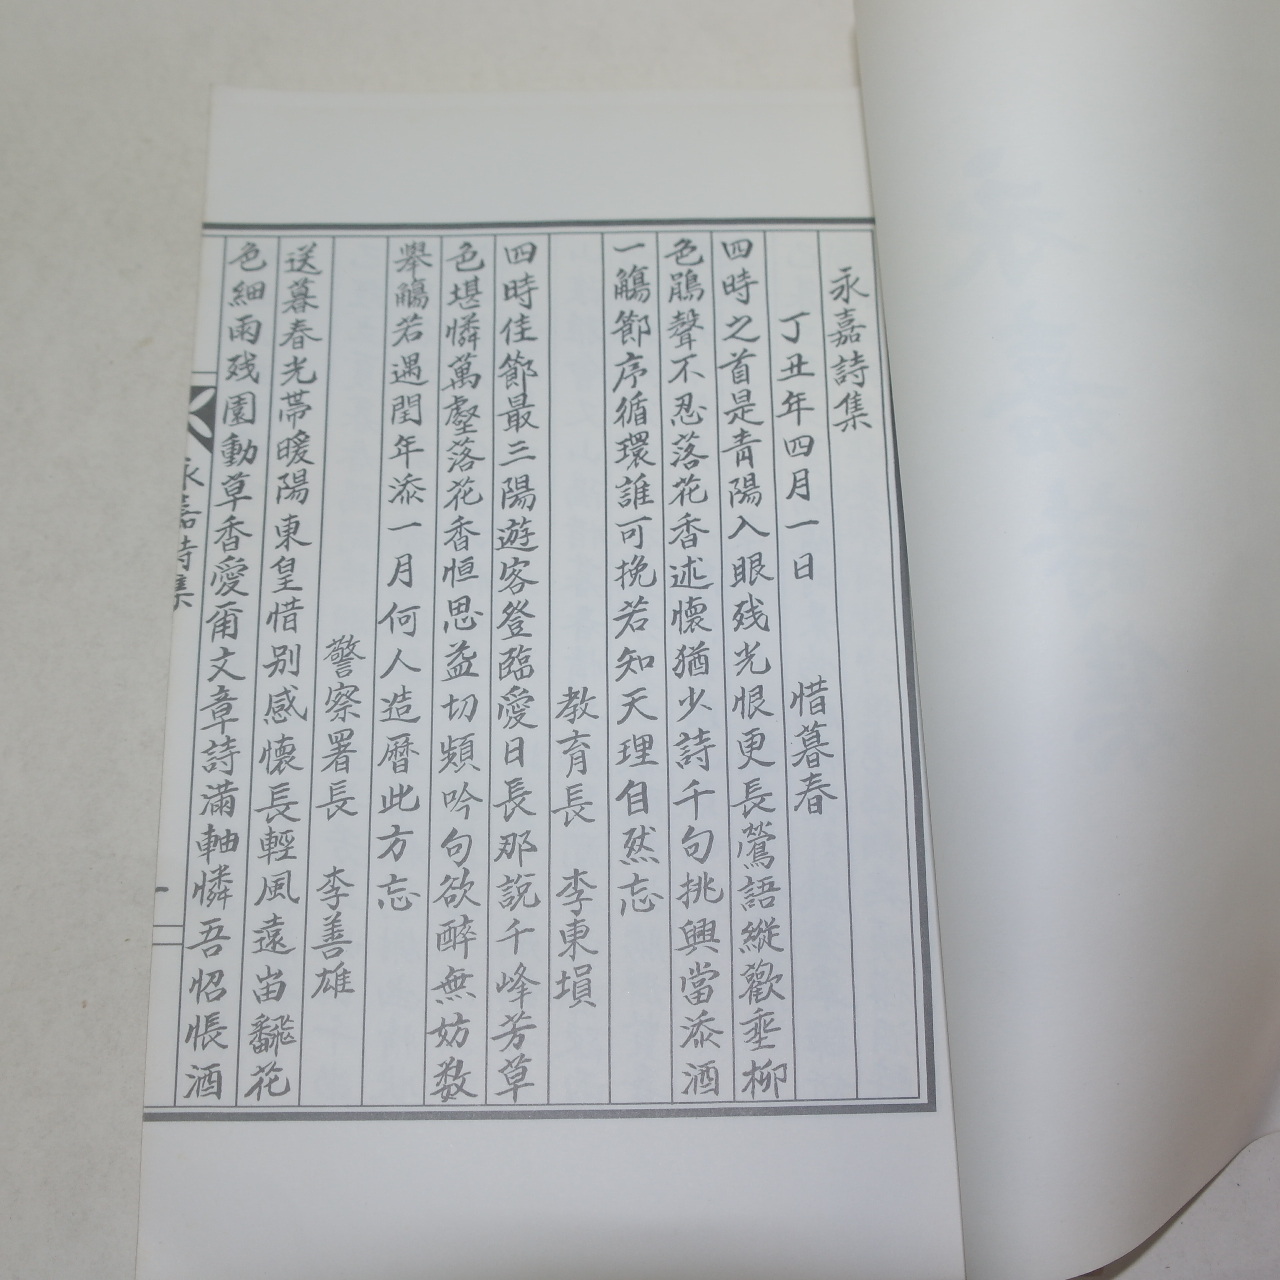 永嘉詩集
丁丑年四月一日　惜暮春
四時之首是青陽入眼残光恨更長鶯語縱歡垂柳
色鵑聲不忍落花香述懷猶少詩千句挑興當添酒
一觴節序循環誰可挽若知天理自然忘
教育長　李東塤
四時佳節最三陽遊客登臨愛日長那説千峰芳草
色堪憐萬壑落花香恒思益切頻吟句欲醉無妨数
舉觴若遇閏年添一月何人造曆此方忘
警察署長　李善雄
送暮春光帶暖陽東皇惜别感懷長輕風遠岀飜花
色細雨残園動草香愛甭文章詩滿軸憐吾怊悵酒
永嘉詩集
一